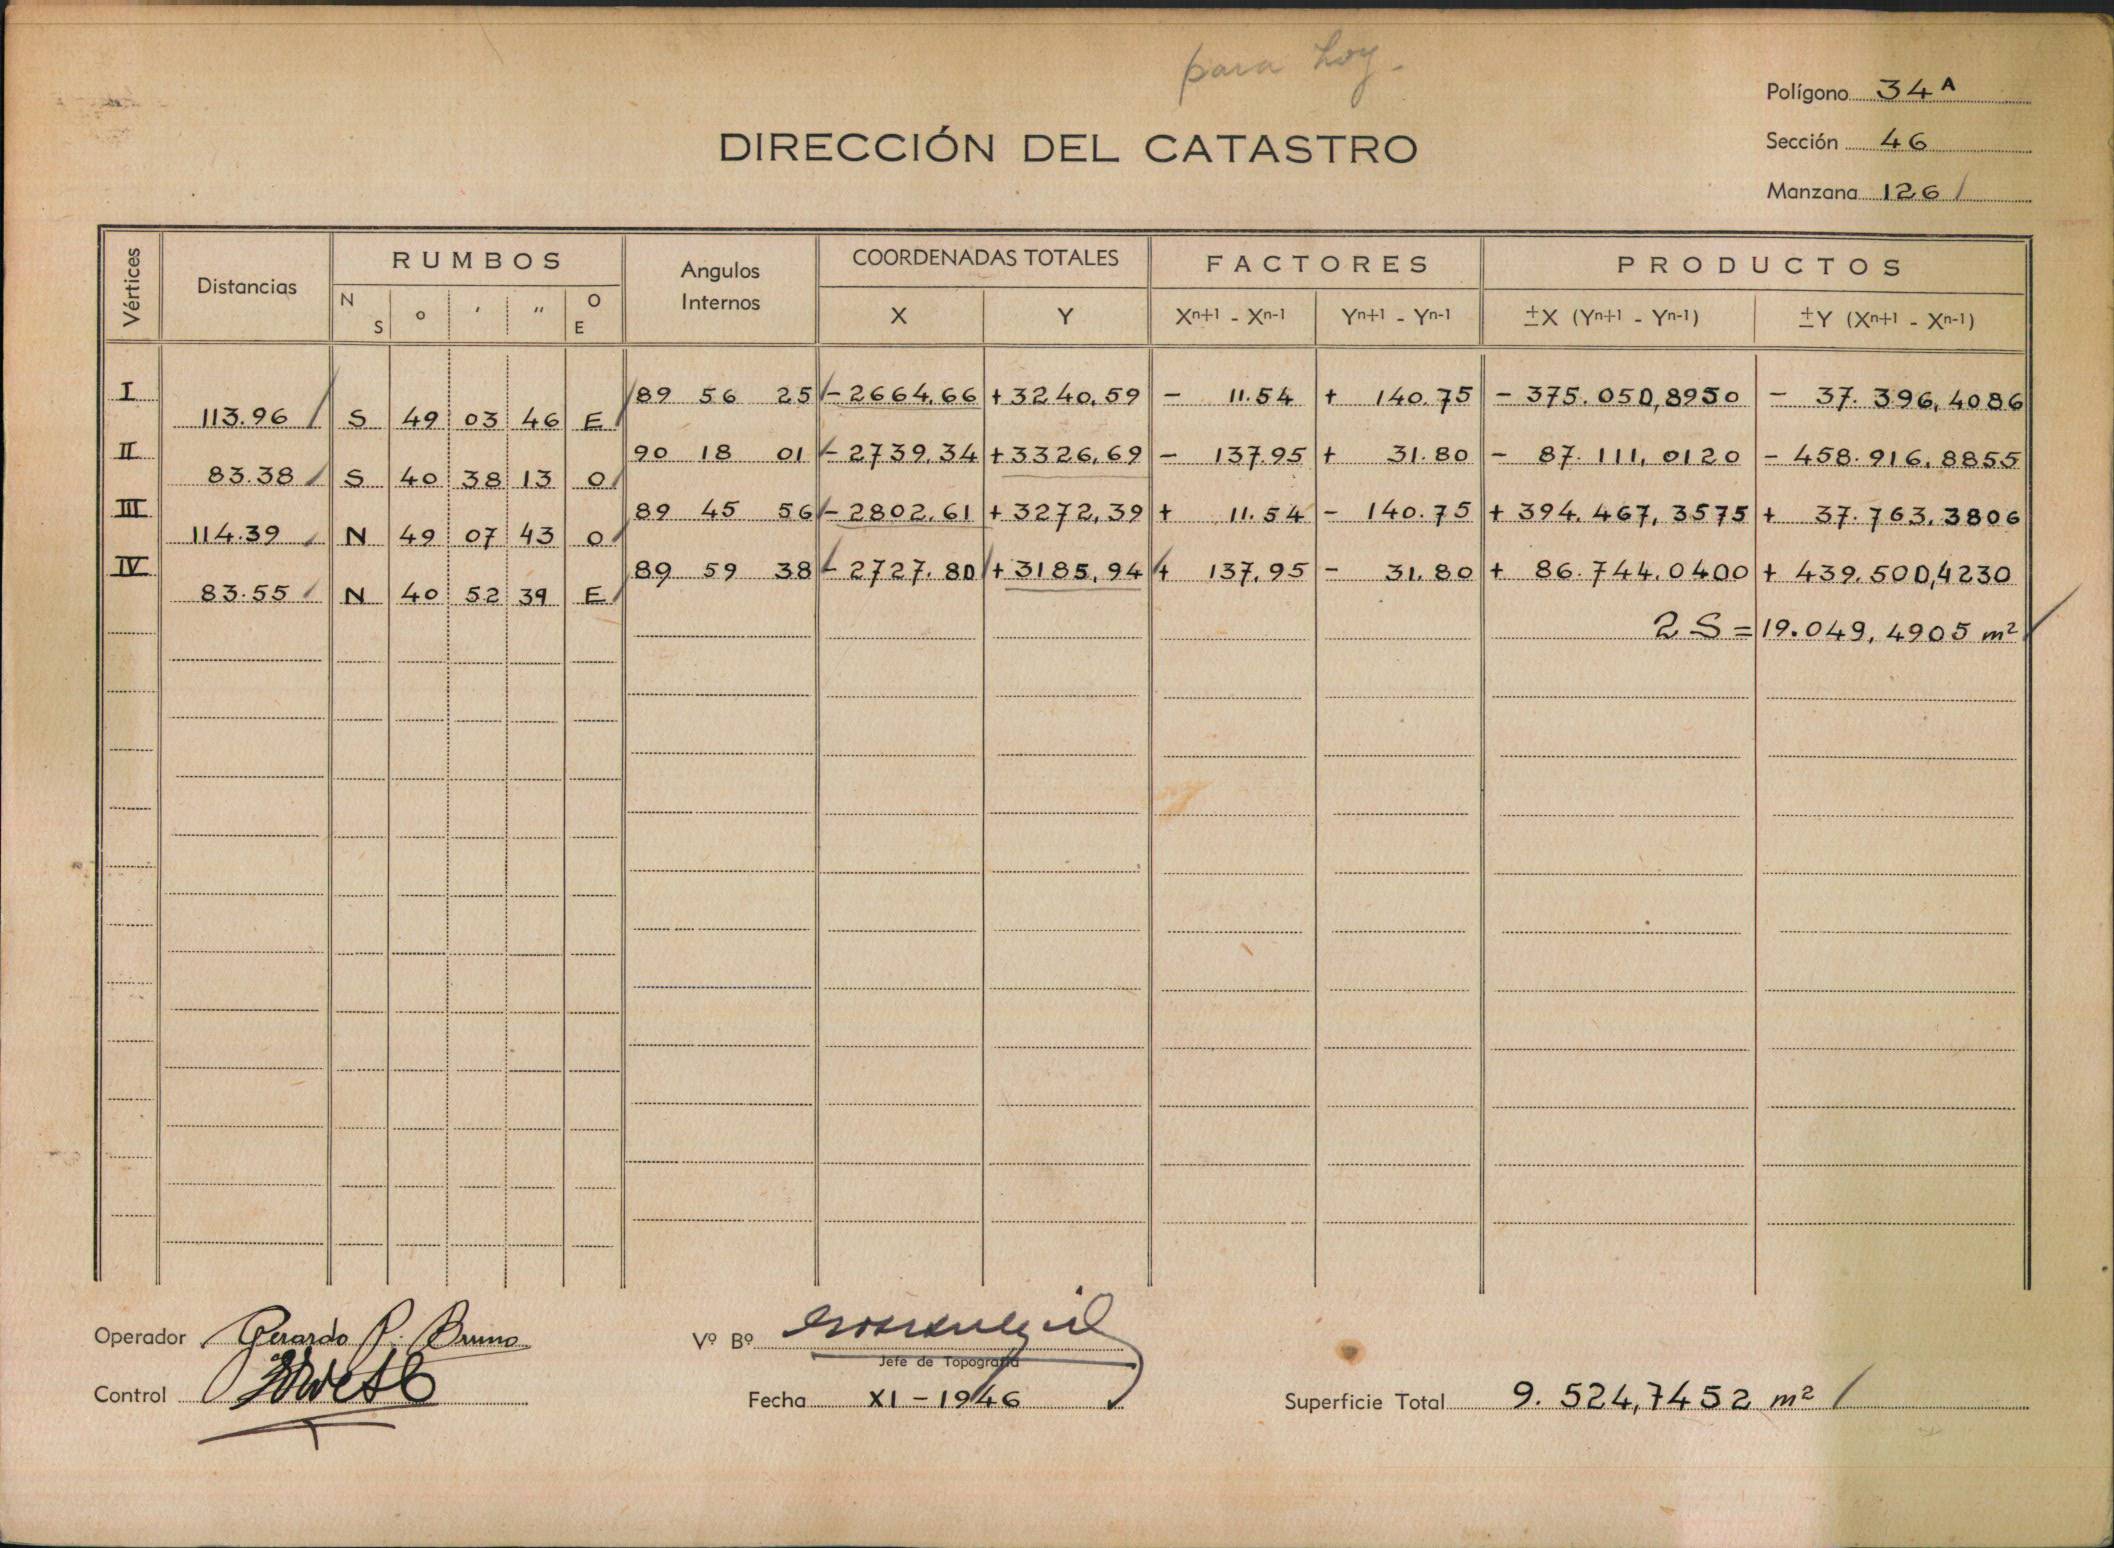 para hoy.
Polígono 34 A
DIRECCIÓN DEL CATASTRO
Sección 46
Manzana 126
Vértices Distancias RUMBOS Angulos Internos COORDENADAS TOTALES FACTORES PRODUCTOS
N S o ′ ″ O E X Y Xn+1 - Xn-1 Yn+1 - Yn-1 ±X (Yn+1 - Yn-1) ±Y (Xn+1 - Xn-1)
I 89 56 25 - 2664.66 + 3240,59 - 11.54 + 140.75 - 375.050,8950 - 37.396,4086
113.96 S 49 03 46 E
II 90 18 01 - 2739,34 + 3326,69 - 137.95 + 31.80 - 87.111,0120 - 458.916,8855
83.38 S 40 38 13 O
III 89 45 56 - 2802,61 + 3272,39 + 11.54 - 140.75 + 394.467,3575 + 37.763,3806
114.39 N 49 07 43 O
IV 89 59 38 - 2727.80 + 3185,94 + 137,95 - 31.80 + 86.744.0400 + 439.500,4230
83.55 N 40 52 39 E
2 S = 19.049,4905 m²
Operador Gerardo P. Bruno
Vº Bº
Jefe de Topografía
Control
Fecha XI - 1946
Superficie Total 9.524,7452 m²